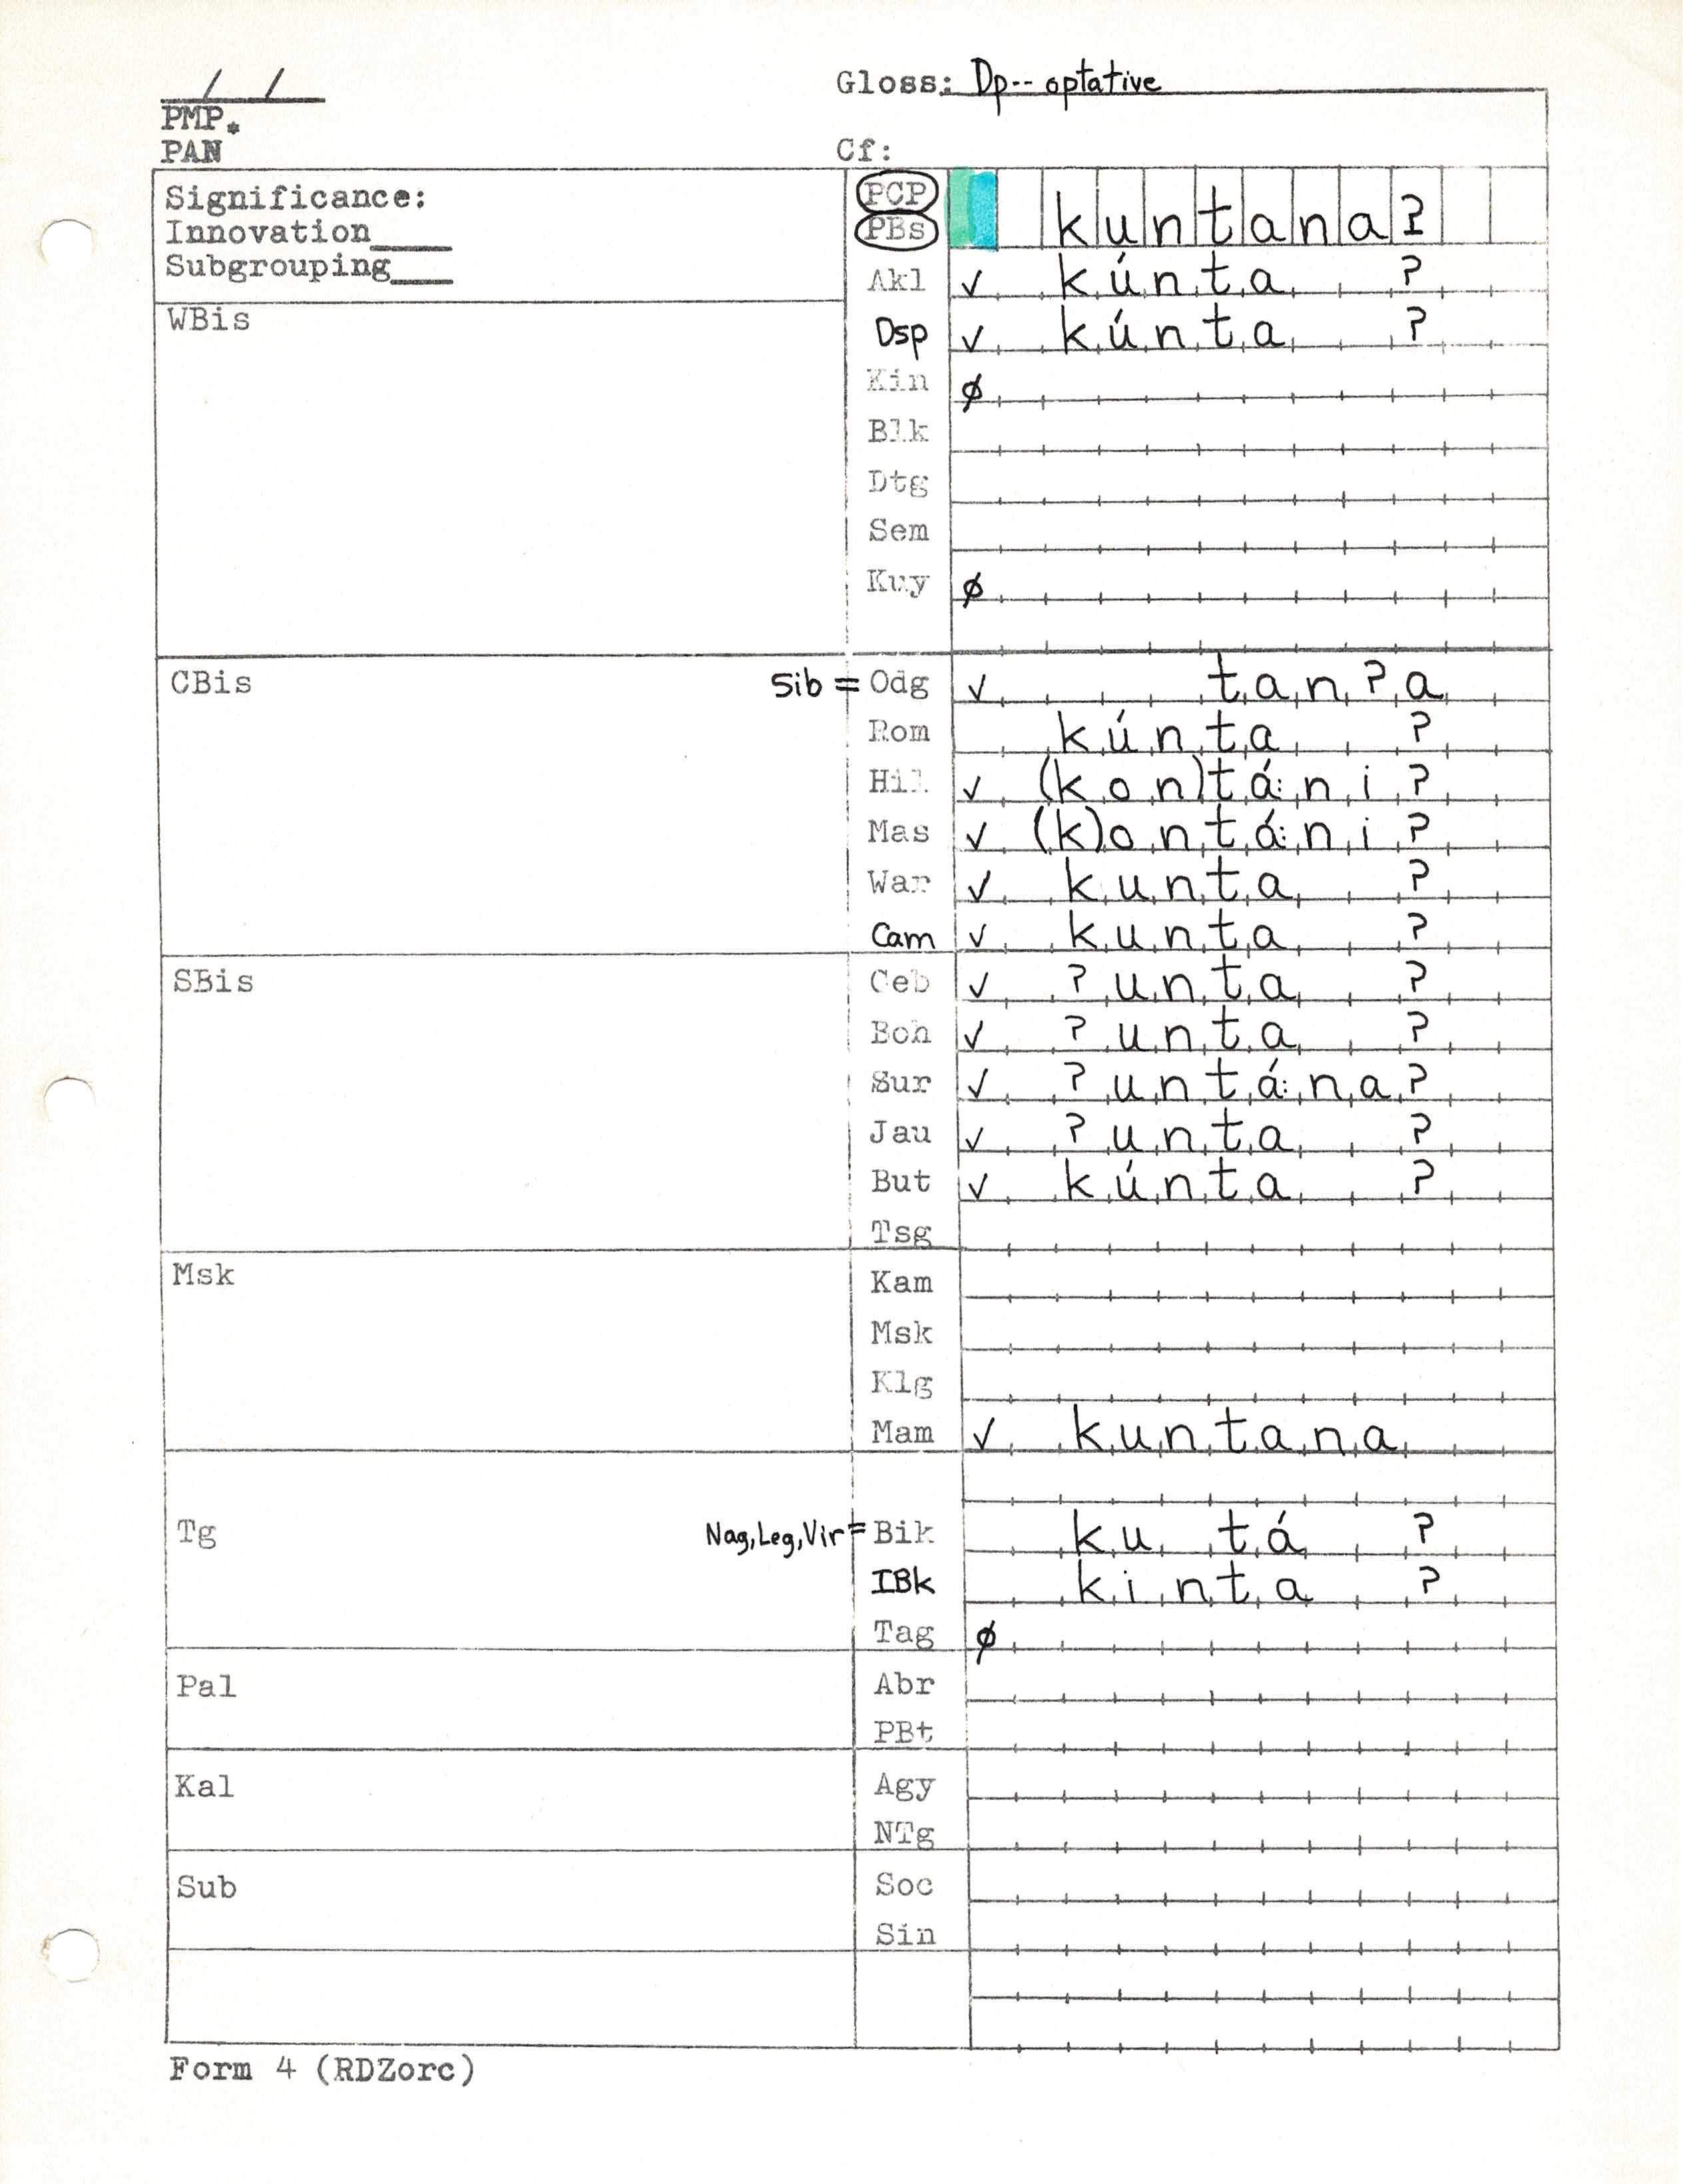 / /
Gloss: Dp-- optative
PMP*
PAN
Cf:
Significance:
Innovation____
Subgrouping___
PCP
PBs kuntana?
Akl ✓ kúnta ?
WBis
Dsp ✓ kúnta ?
Kin ø
Blk
Dtg
Sem
Kuy ø
CBis Sib = Odg ✓ tan?a
Rom kúnta ?
Hil ✓ (kon)tá:ni?
Mas ✓ (k)ontá:ni?
War ✓ kunta ?
Cam ✓ kunta ?
SBis Ceb ✓ ?unta ?
Boh ✓ ?unta ?
Sur ✓ ?untá:na?
Jau ✓ ?unta ?
But ✓ kúnta ?
Tsg
Msk Kam
Msk
Klg
Mam ✓ kuntana
Tg Nag, Leg, Vir = Bik ku tá ?
IBk kinta ?
Tag ø
Pal Abr
PBt
Kal Agy
NTg
Sub Soc
Sin
Form 4 (RDZorc)